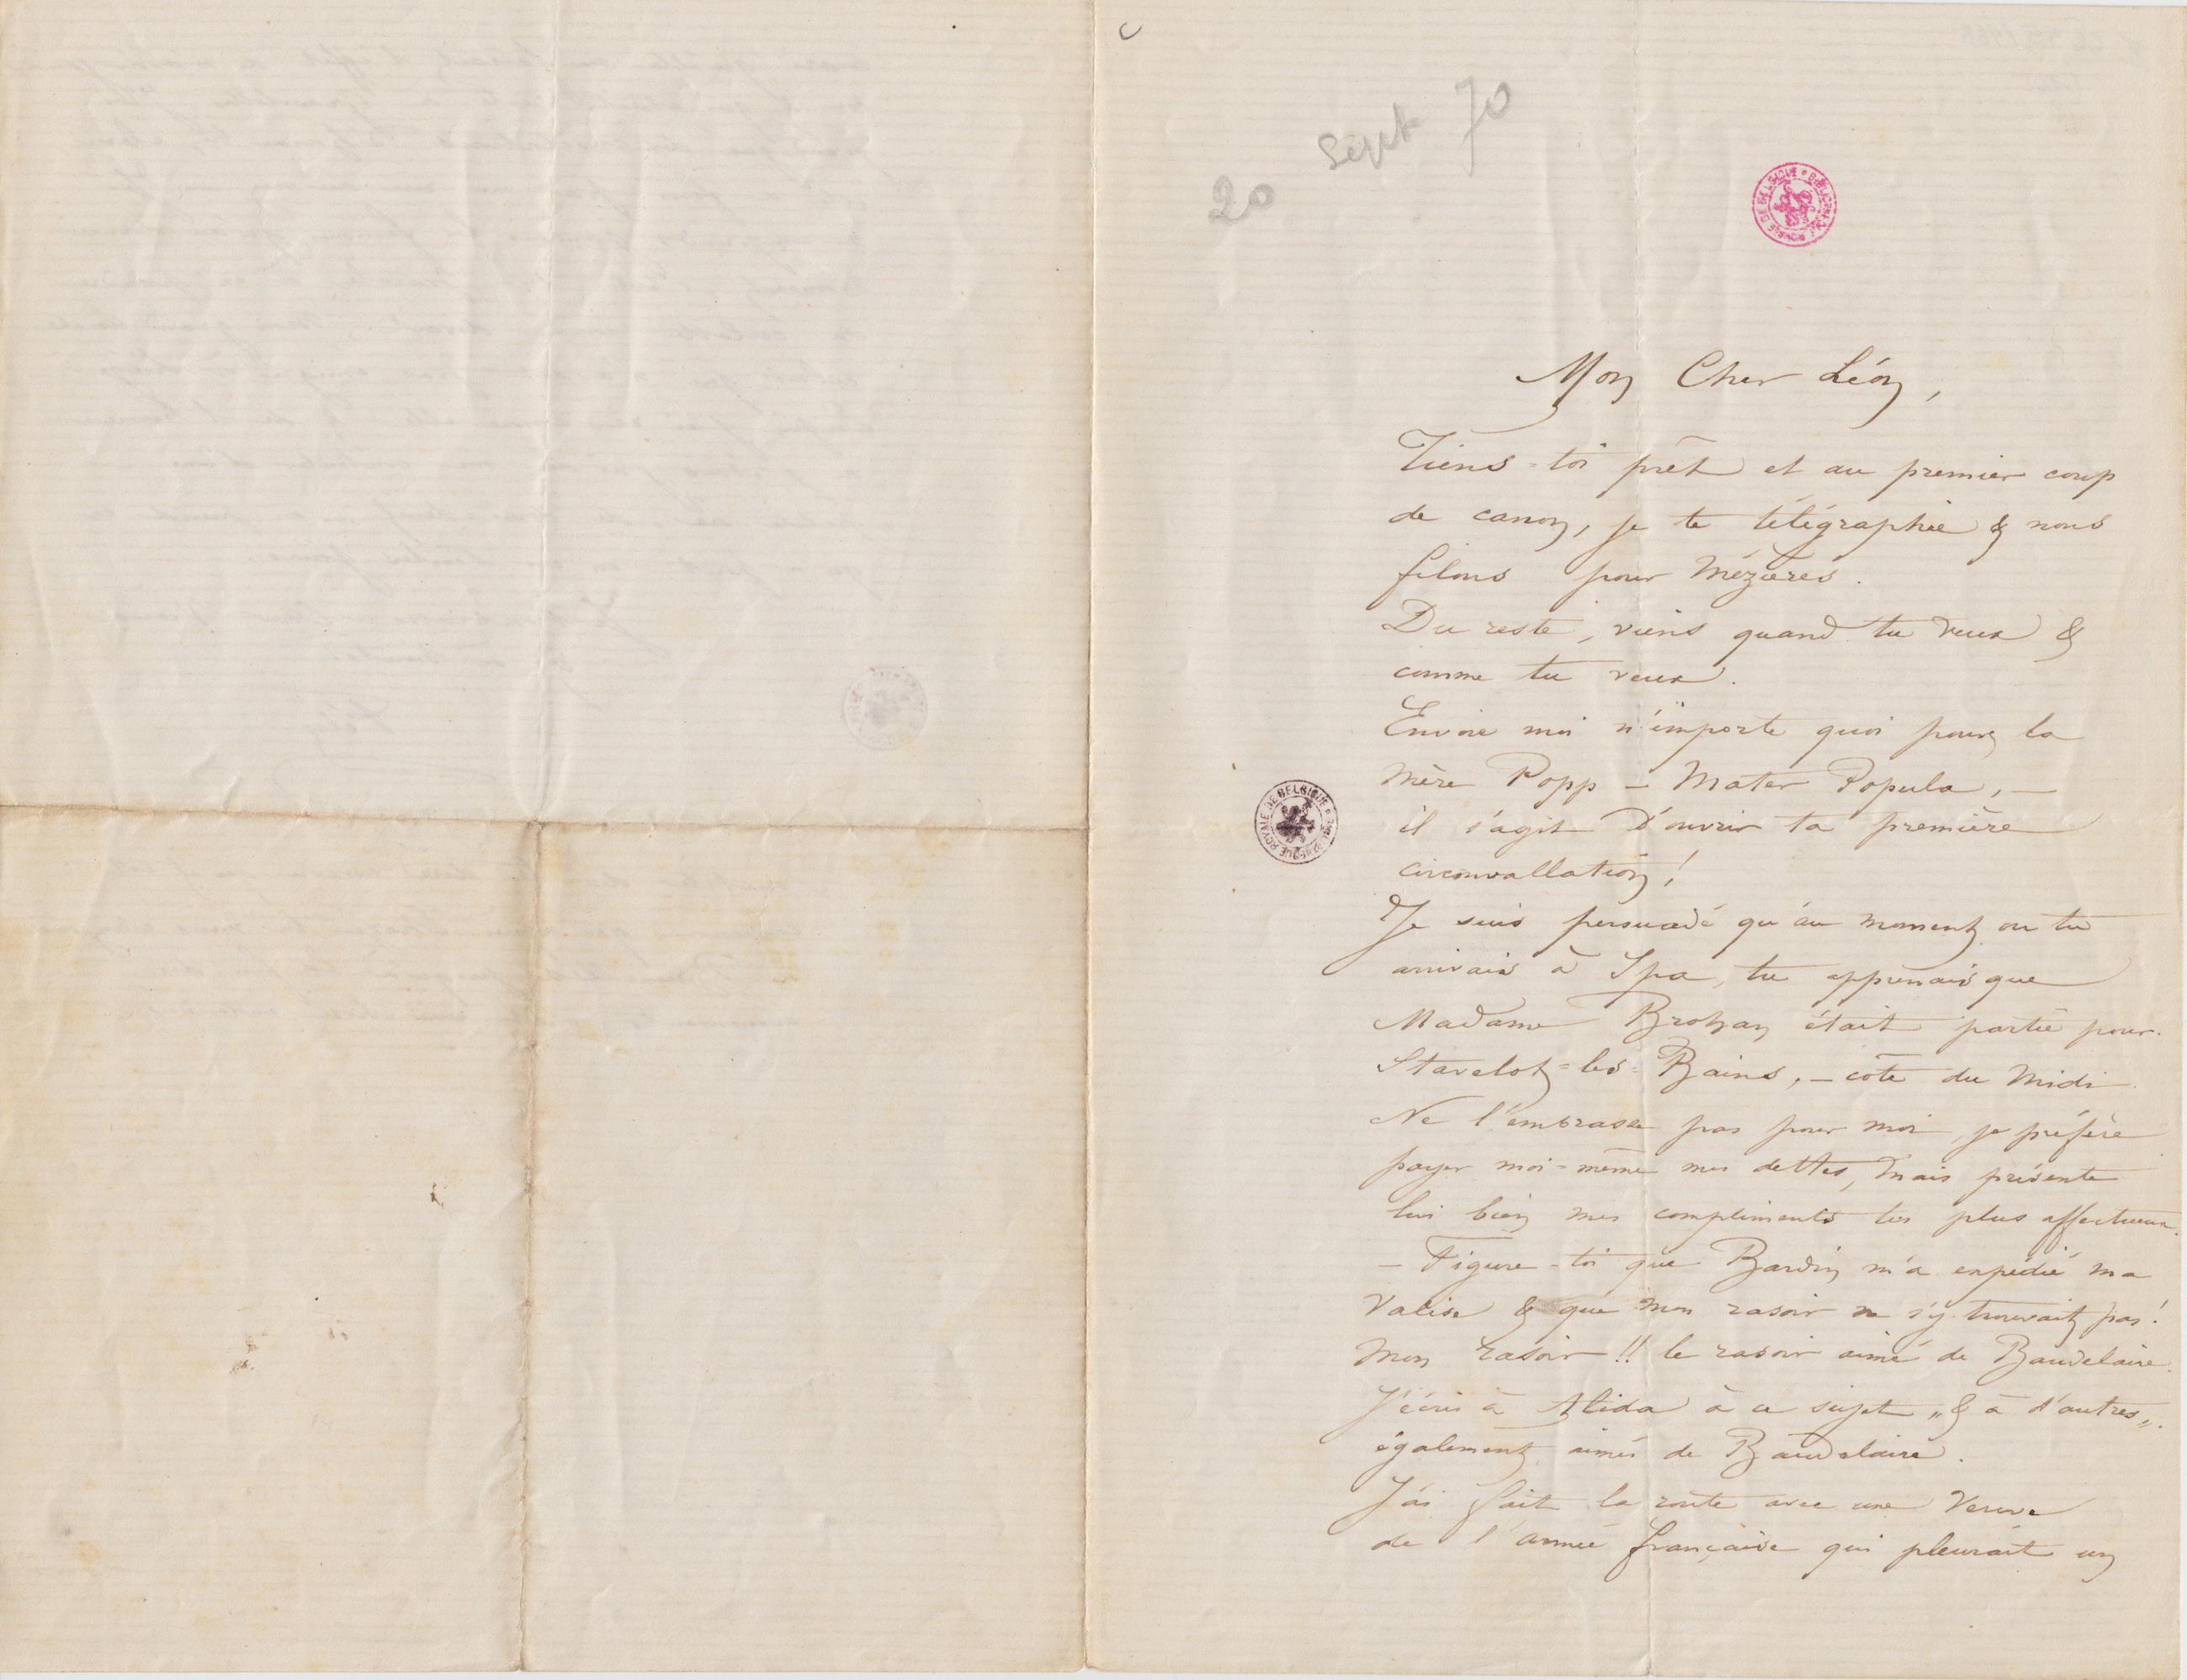 20 Sept 70
BIBLIOTHÈQUE ROYALE DE BELGIQUE
Mon Cher Léon,
Tiens-toi prêt et au premier coup
de canon, je te télégraphie & nous
filons pour Mézières.
Du reste, viens quand tu veux &
comme tu veux.
Envoie moi n'importe quoi pour la
mère Popp – Mater Popula, –
il s'agit d'ouvrir ta première
circonvallation !
Je suis persuadé qu'au moment ou tu
arrivais à Spa, tu apprenais que
Madame Brohan était partie pour
Stavelot-les-Bains, – côté du Midi.
Ne l'embrasse pas pour moi, je préfère
payer moi-même mes dettes, mais présente
lui bien mes compliments les plus affectueux.
– Figure-toi que Bardin m'a expédié ma
valise & que mon rasoir ne s'y trouvait pas !
Mon rasoir !! le rasoir aimé de Baudelaire.
J'écris à Alida à ce sujet „& à d'autres„
également aimés de Baudelaire.
J'ai fait la route avec une Veuve
de l'armée française qui pleurait un